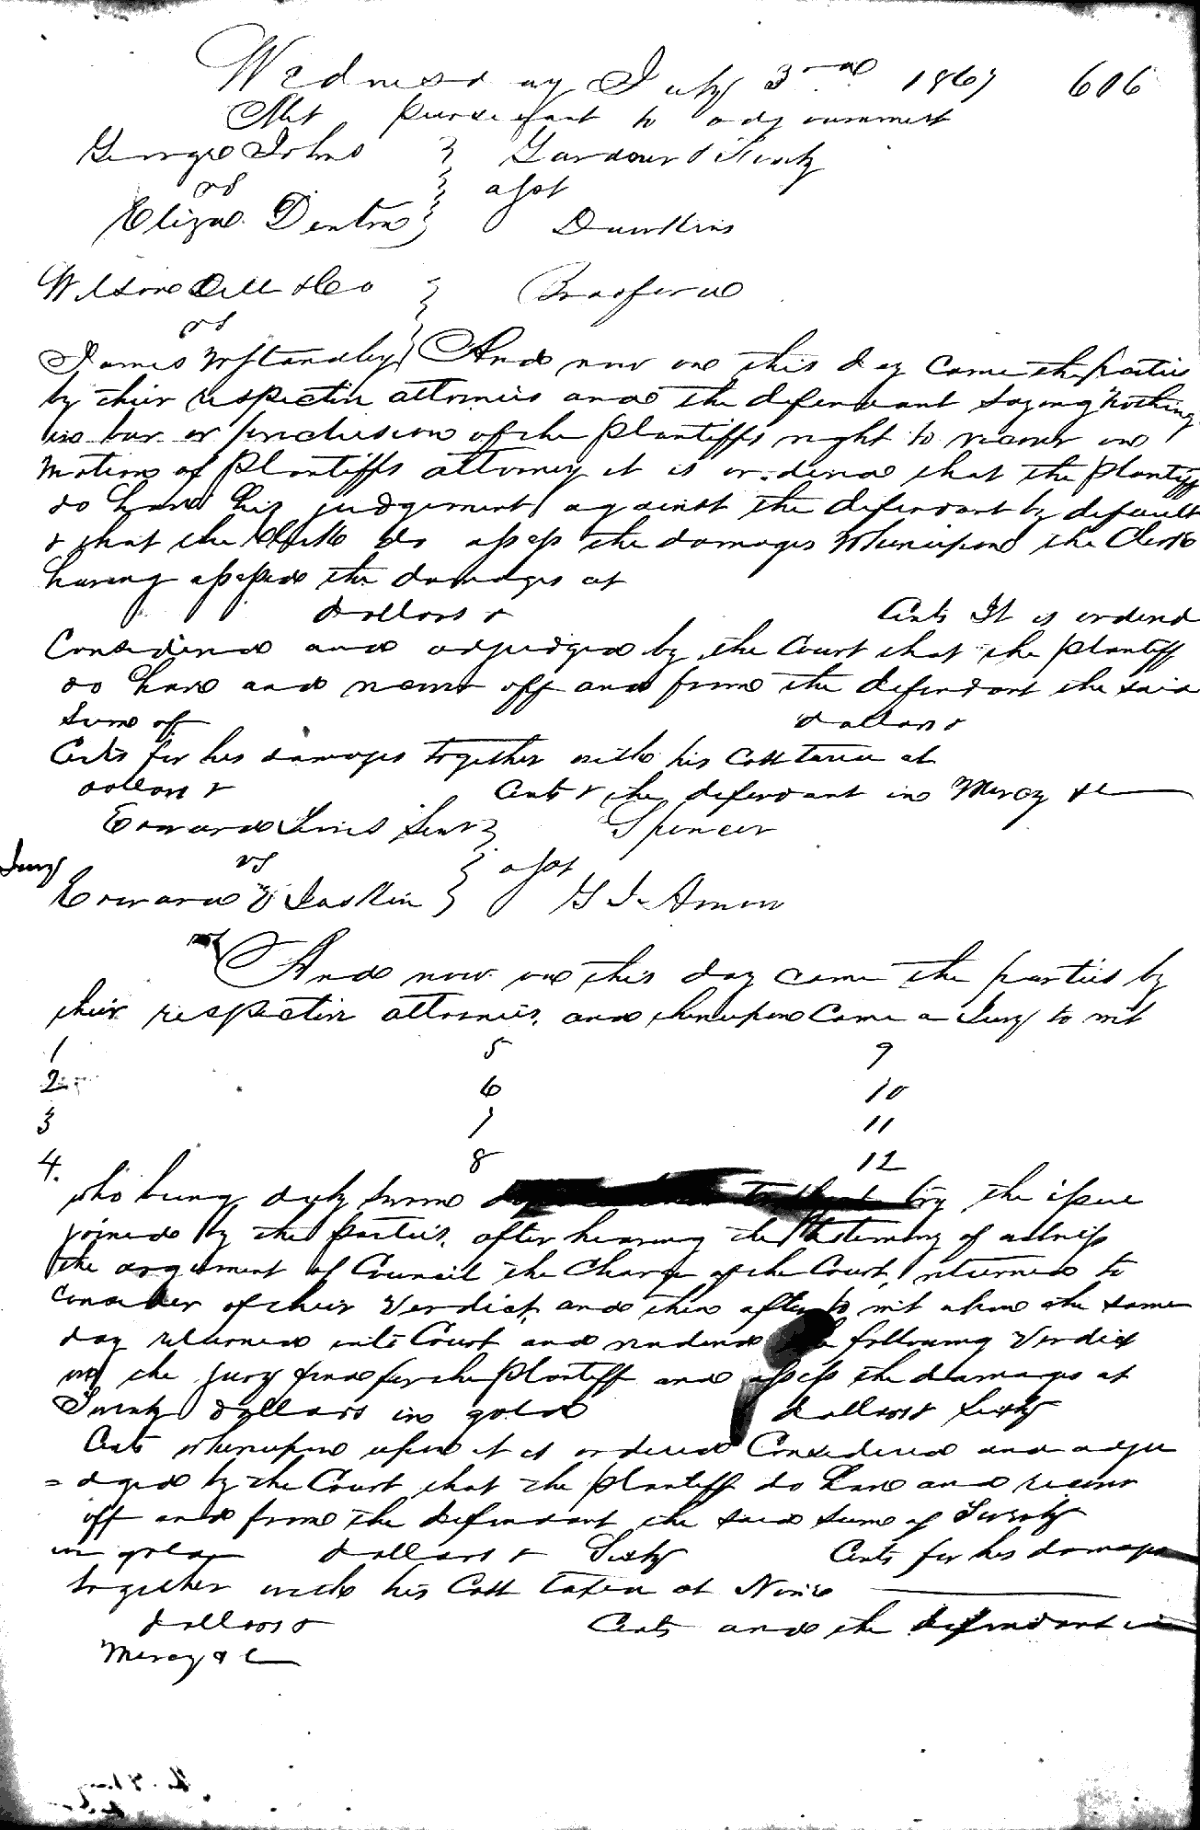 Wednesday July 3rd 1867 606
Met pursuant to adjournment
George Johns } Gardour &
vs } asst
Eliza Denton } Dawkins
Wilson Dell & Co } Bradford
vs
James M Standley } And now on this day came the parties
by their respective attornies and the defendant saying nothing
in bar or preclusion of the plantiffs right to recover on
motion of plantiffs attorney it is ordered that the plantiff
do have his judgement against the defendant by default
& that the Clerk do assess the damages Whereupon the Clerk
having assessed the damages at
dollars & Cents It is ordered
Considered and adjudged by the Court that the plantiff
do have and recover off and from the defendant the said
sum of dollars &
Cents for his damages together with his Cost taxed at
dollars & Cents & the defendant in Mercy &c
Edward }  Spencer
Jury vs } asst
Edward } G I Arnow
And now on this day came the parties by
their respective attornies, and thereupon Came a Jury to wit
1 5 9
2 6 10
3 7 11
4. 8 12
who being duly sworn try the issue
joined by the parties, after hearing the testimony of witness
the argument of Council the Charge of the Court, returned to
consider of their Verdict, and then after to wit when the same
day returned into Court and rendered the following Verdict
we the jury find for the plantiff and assess the damages at
Twenty dollars in gold dollars & Sixty
Cents whereupon upon it is ordered Considered and adju
=dged by the Court that the plantiff do have and recover
off and from the defendant the said sum of Twenty
in gold dollars & Sixty Cents for his damages
together with his Cost taxed at Nine
dollars & Cents and the defendant in
Mercy &c